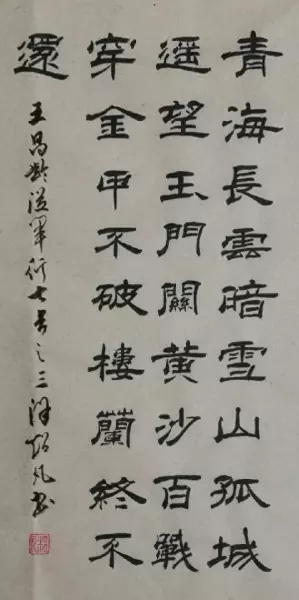 青海長雲暗雪山孤城
遥望玉門關黄沙百戰
穿金甲不破樓蘭終不
還
王昌齡從軍行七首之三